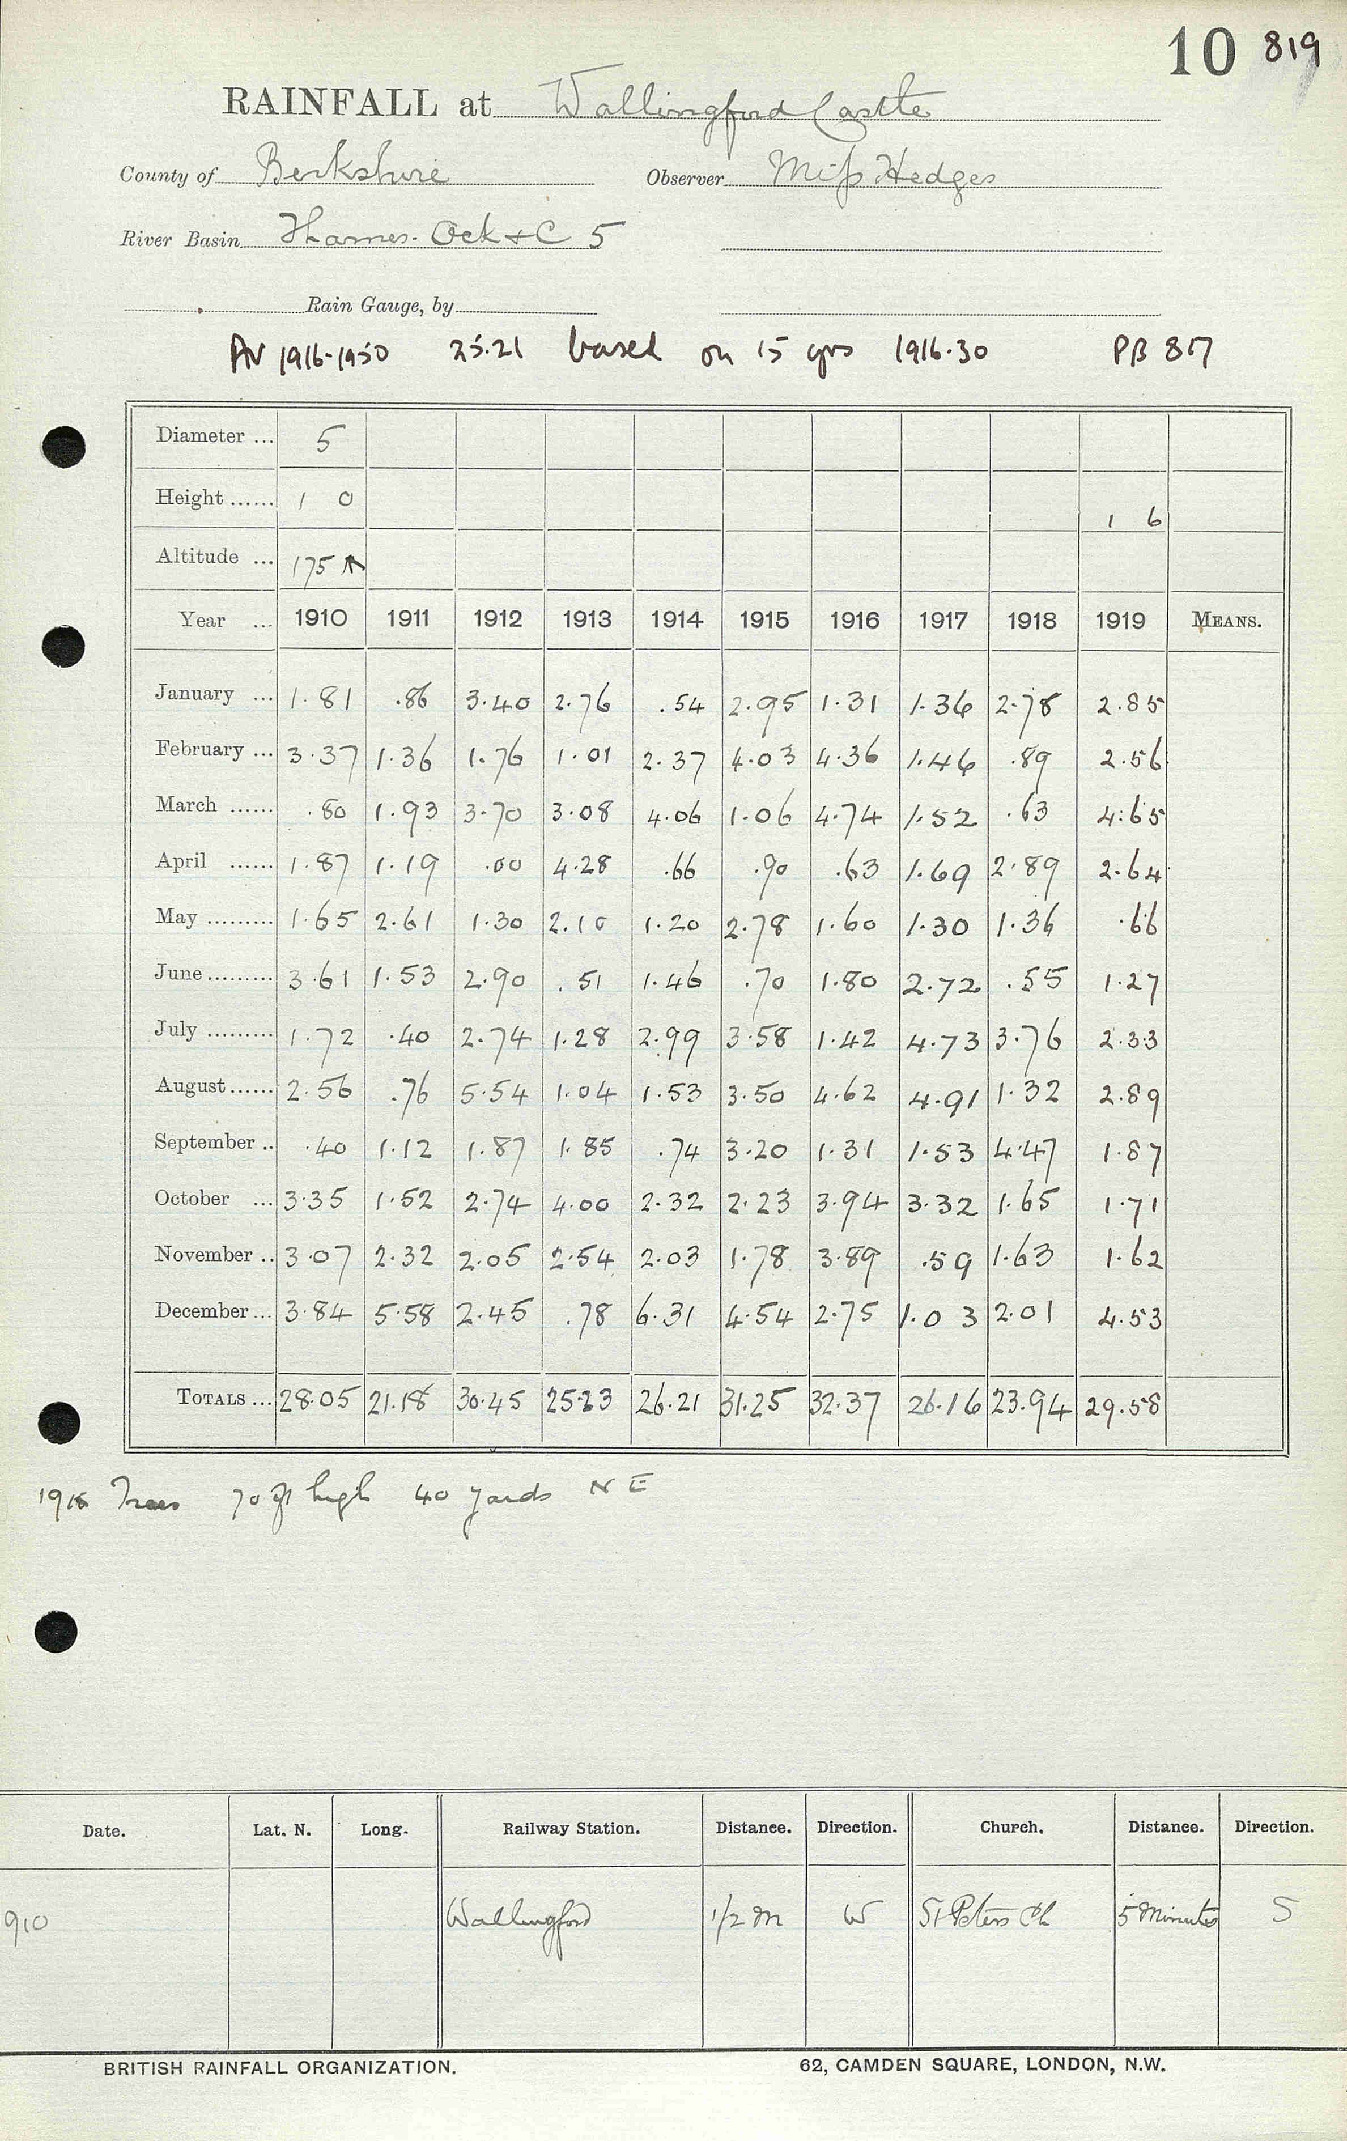 10 819
RAINFALL at Wallingford Castle
County of Berkshire Observer Miss Hedges
River Basin Thames. Ock + C 5
Rain Gauge, by
AV 1916-1950 25.21 based on 15 yrs 1916.30 PB 817
Diameter ... 5
Height ...... 1 0 1 6
Altitude ... 175
Year ... 1910 1911 1912 1913 1914 1915 1916 1917 1918 1919 MEANS.
January ... 1.81 .86 3.40 2.76 .54 2.95 1.31 1.36 2.78 2.85
February ... 3.37 1.36 1.76 1.01 2.37 4.03 4.36 1.46 .89 2.56
March ...... .80 1.93 3.70 3.08 4.06 1.06 4.74 1.52 .63 4.65
April ...... 1.87 1.19 .00 4.28 .66 .90 .63 1.69 2.89 2.64
May ......... 1.65 2.61 1.30 2.10 1.20 2.78 1.60 1.30 1.36 .66
June ......... 3.61 1.53 2.90 .51 1.46 .70 1.80 2.72 .55 1.27
July ......... 1.72 .40 2.74 1.28 2.99 3.58 1.42 4.73 3.76 2.33
August...... 2.56 .76 5.54 1.04 1.53 3.50 4.62 4.91 1.32 2.89
September .. .40 1.12 1.87 1.85 .74 3.20 1.31 1.53 4.47 1.87
October ... 3.35 1.52 2.74 4.00 2.32 2.23 3.94 3.32 1.65 1.71
November .. 3.07 2.32 2.05 2.54 2.03 1.78 3.89 .59 1.63 1.62
December ... 3.84 5.58 2.45 .78 6.31 4.54 2.75 1.03 2.01 4.53
TOTALS ... 28.05 21.18 30.45 25.23 26.21 31.25 32.37 26.16 23.94 29.58
Trees 70 ft high 40 yards N E
Date. Lat. N. Long. Railway Station. Distance. Direction. Church. Distance. Direction.
910 Wallingford 1/2 m W St Peters Ch 5 Minutes S
BRITISH RAINFALL ORGANIZATION. 62, CAMDEN SQUARE, LONDON, N.W.